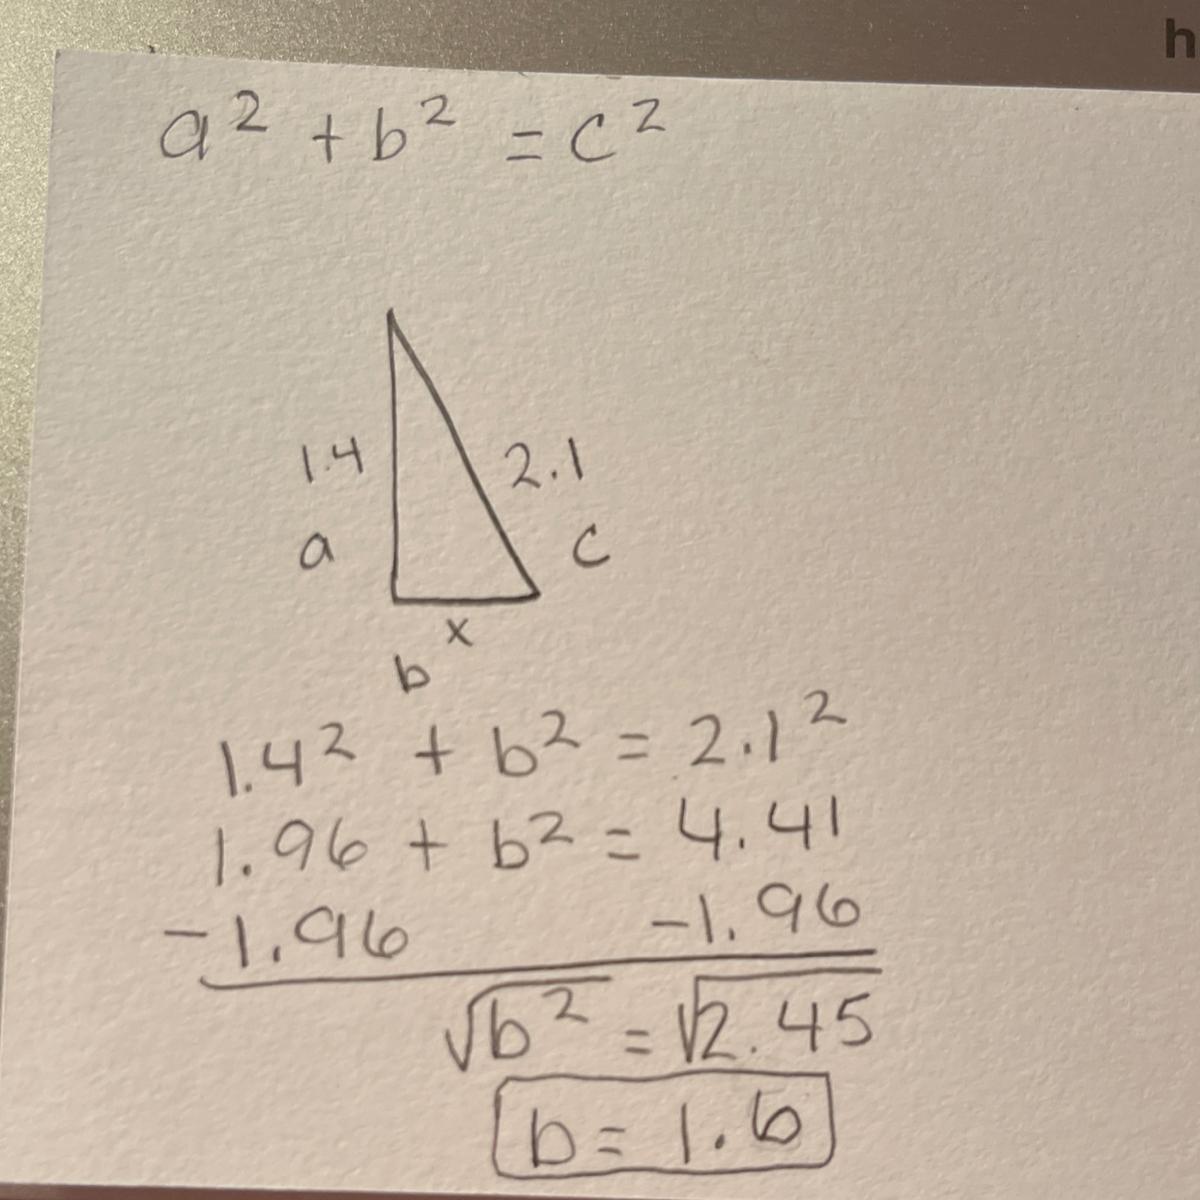 h
a² + b² = c²
1.4 2.1
a c
x
b
1.4² + b² = 2.1²
1.96 + b² = 4.41
-1.96 -1.96
√b² = √2.45
b = 1.6